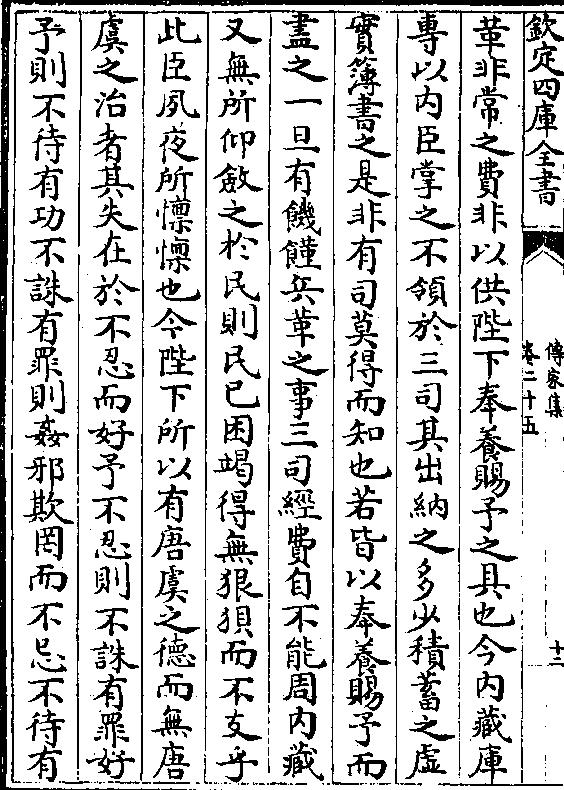 欽定四庫全書
傳家集
卷二十五
十二
革非常之費非以供陛下奉養賜予之具也今内藏庫
專以内臣掌之不領於三司其出納之多少積蓄之虚
實簿書之是非有司莫得而知也若皆以奉養賜予而
盡之一旦有饑饉兵革之事三司經費自不能周内藏
又無所仰斂之於民則民已困竭得無狼狽而不支乎
此臣夙夜所懍懍也今陛下所以有唐虞之德而無唐
虞之治者其失在於不忍而好予不忍則不誅有罪好
予則不待有功不誅有罪則姦邪欺罔而不忌不待有